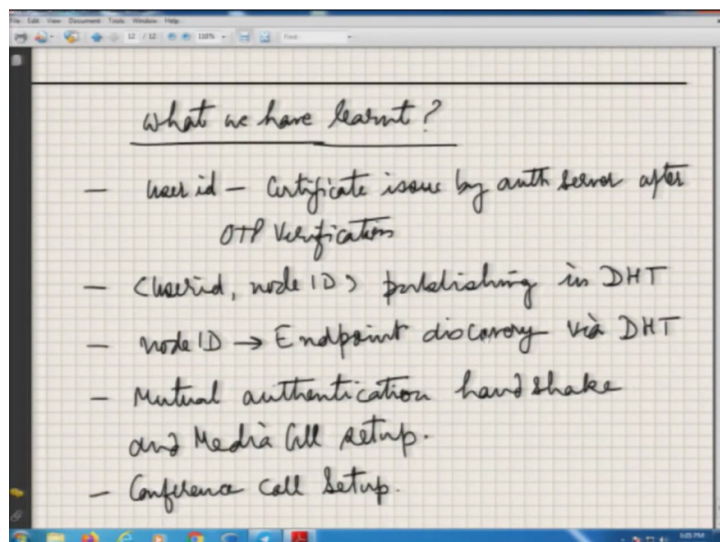 File Edit View Document Tools Window Help
12 / 12 110% Find
What we have learnt?
- user id - Certificate issue by auth server after
OTP Verification
- <userid, node ID> publishing in DHT
- node ID → Endpoint discovery via DHT
- Mutual authentication handshake
and Media Call setup.
- Conference call Setup.